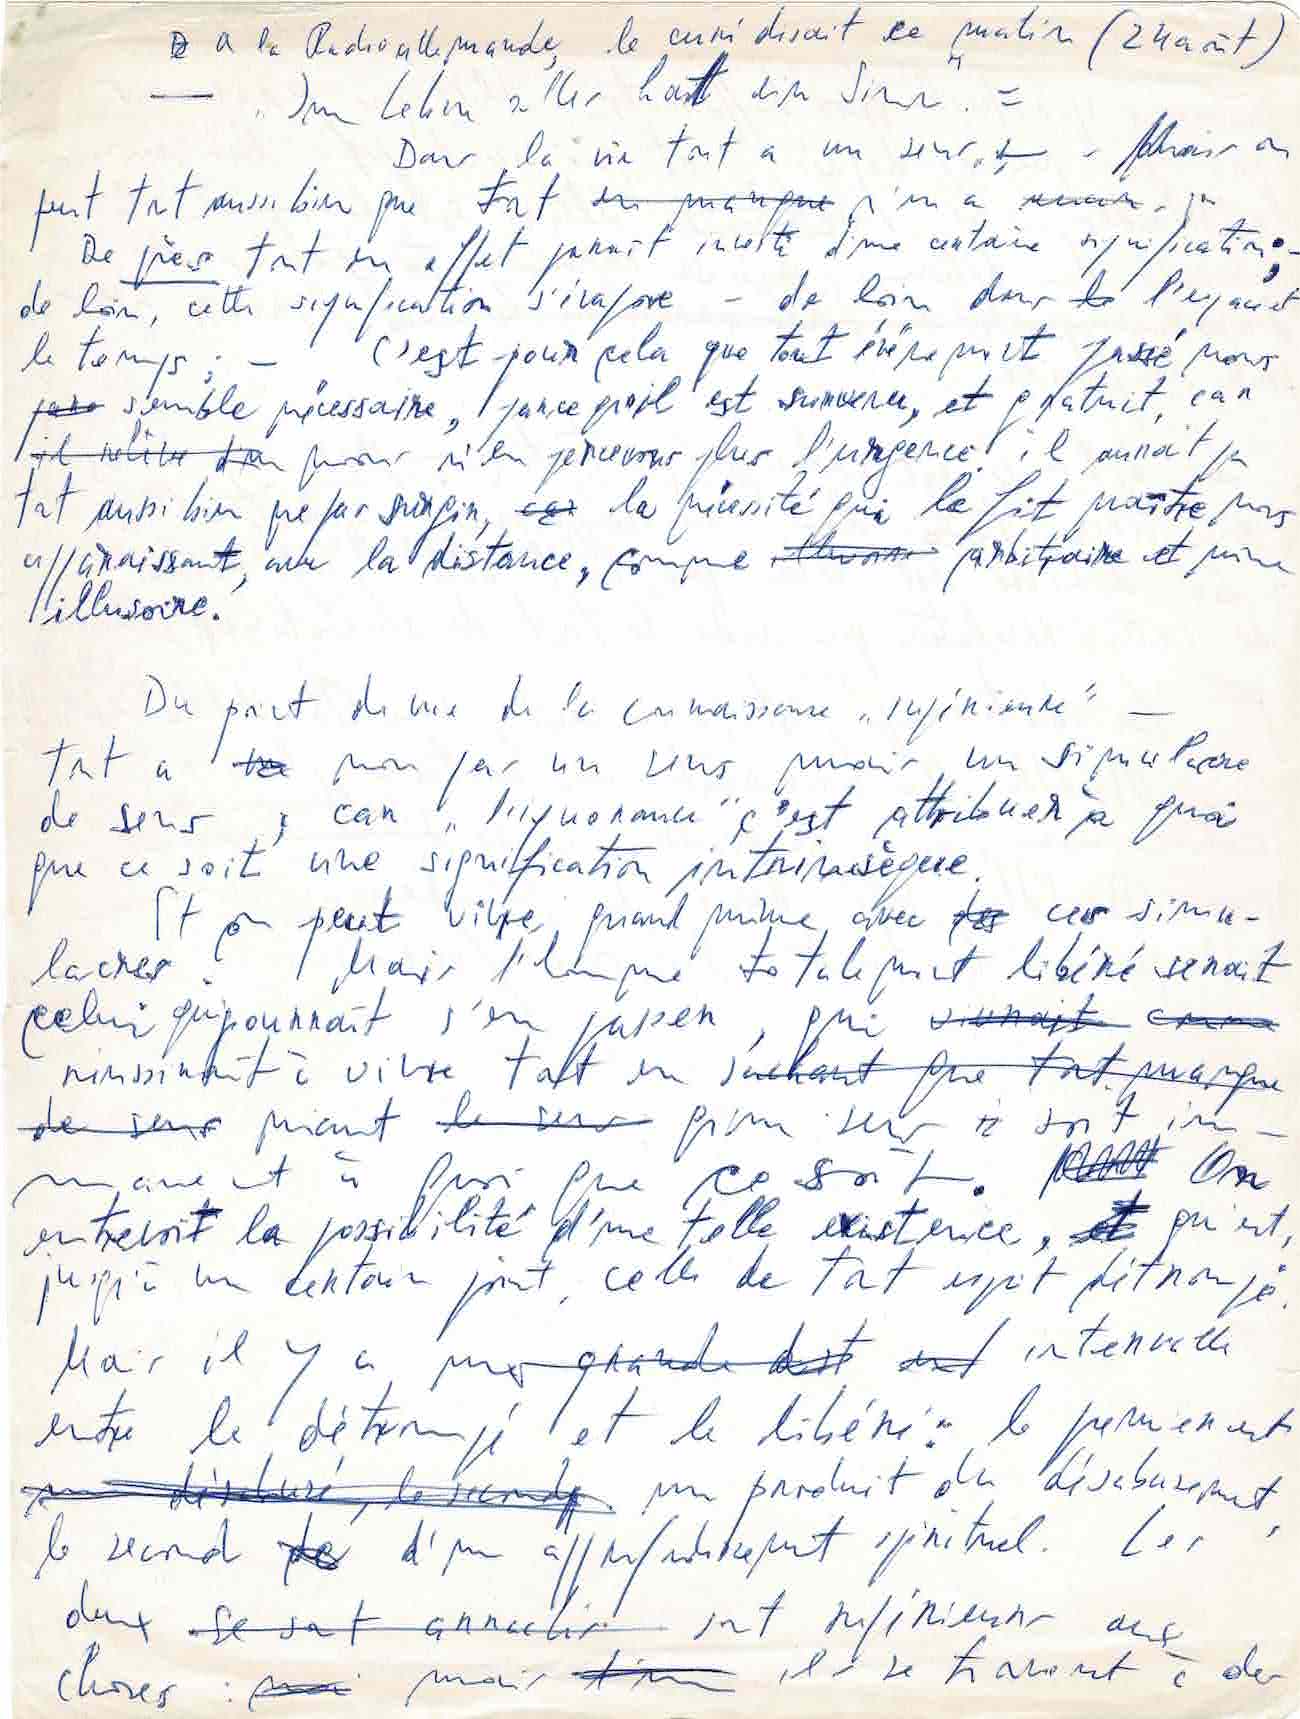 A la Radio allemande, le curé disait ce matin (24 août)
— "Im Leben alles hat ein Sinn". =
Dans la vie tout a un sens. - Mais on
peut tout aussi bien que tout en manque n'en a aucun.
De près tout en effet paraît investi d'une certaine signification; -
de loin, cette signification s'évapore - de loin dans l'espace et
le temps; - C'est pour cela que tout événement passé nous
semble nécessaire, parce qu'il est survenu, et gratuit, car
il relève d'un nous n'en percevons plus l'urgence. il aurait pu
tout aussi bien ne pas surgir, car la nécessité qui le fit naître nous
apparaissant, avec la distance, comme arbitraire et même
illusoire.
Du point de vue de la connaissance "supérieure" —
tout a non pas un sens mais un simulacre
de sens ; car "l'ignorance" c'est attribuer à quoi
que ce soit une signification intrinsèque.
Et on peut vivre quand même avec des ces simu-
lacres. Mais l'homme totalement libéré serait
celui qui pourrait s'en passer, qui vivrait comme
réussirait à vivre tout en sachant que tout manque
de sens niant le sens qu'un sens soit im-
manent à quoi que ce soit. On
entrevoit la possibilité d'une telle existence, et qui est,
jusqu'à un certain point, celle de tout esprit détrompé.
Mais il y a une grande dist intervalle
entre le détrompé et le libéré: le premier est
un désabusé, le second un produit du désabusement,
le second de d'un approfondissement spirituel. Les
deux se sont annuelis sont supérieurs aux
choses : mais ils se trouvent à des